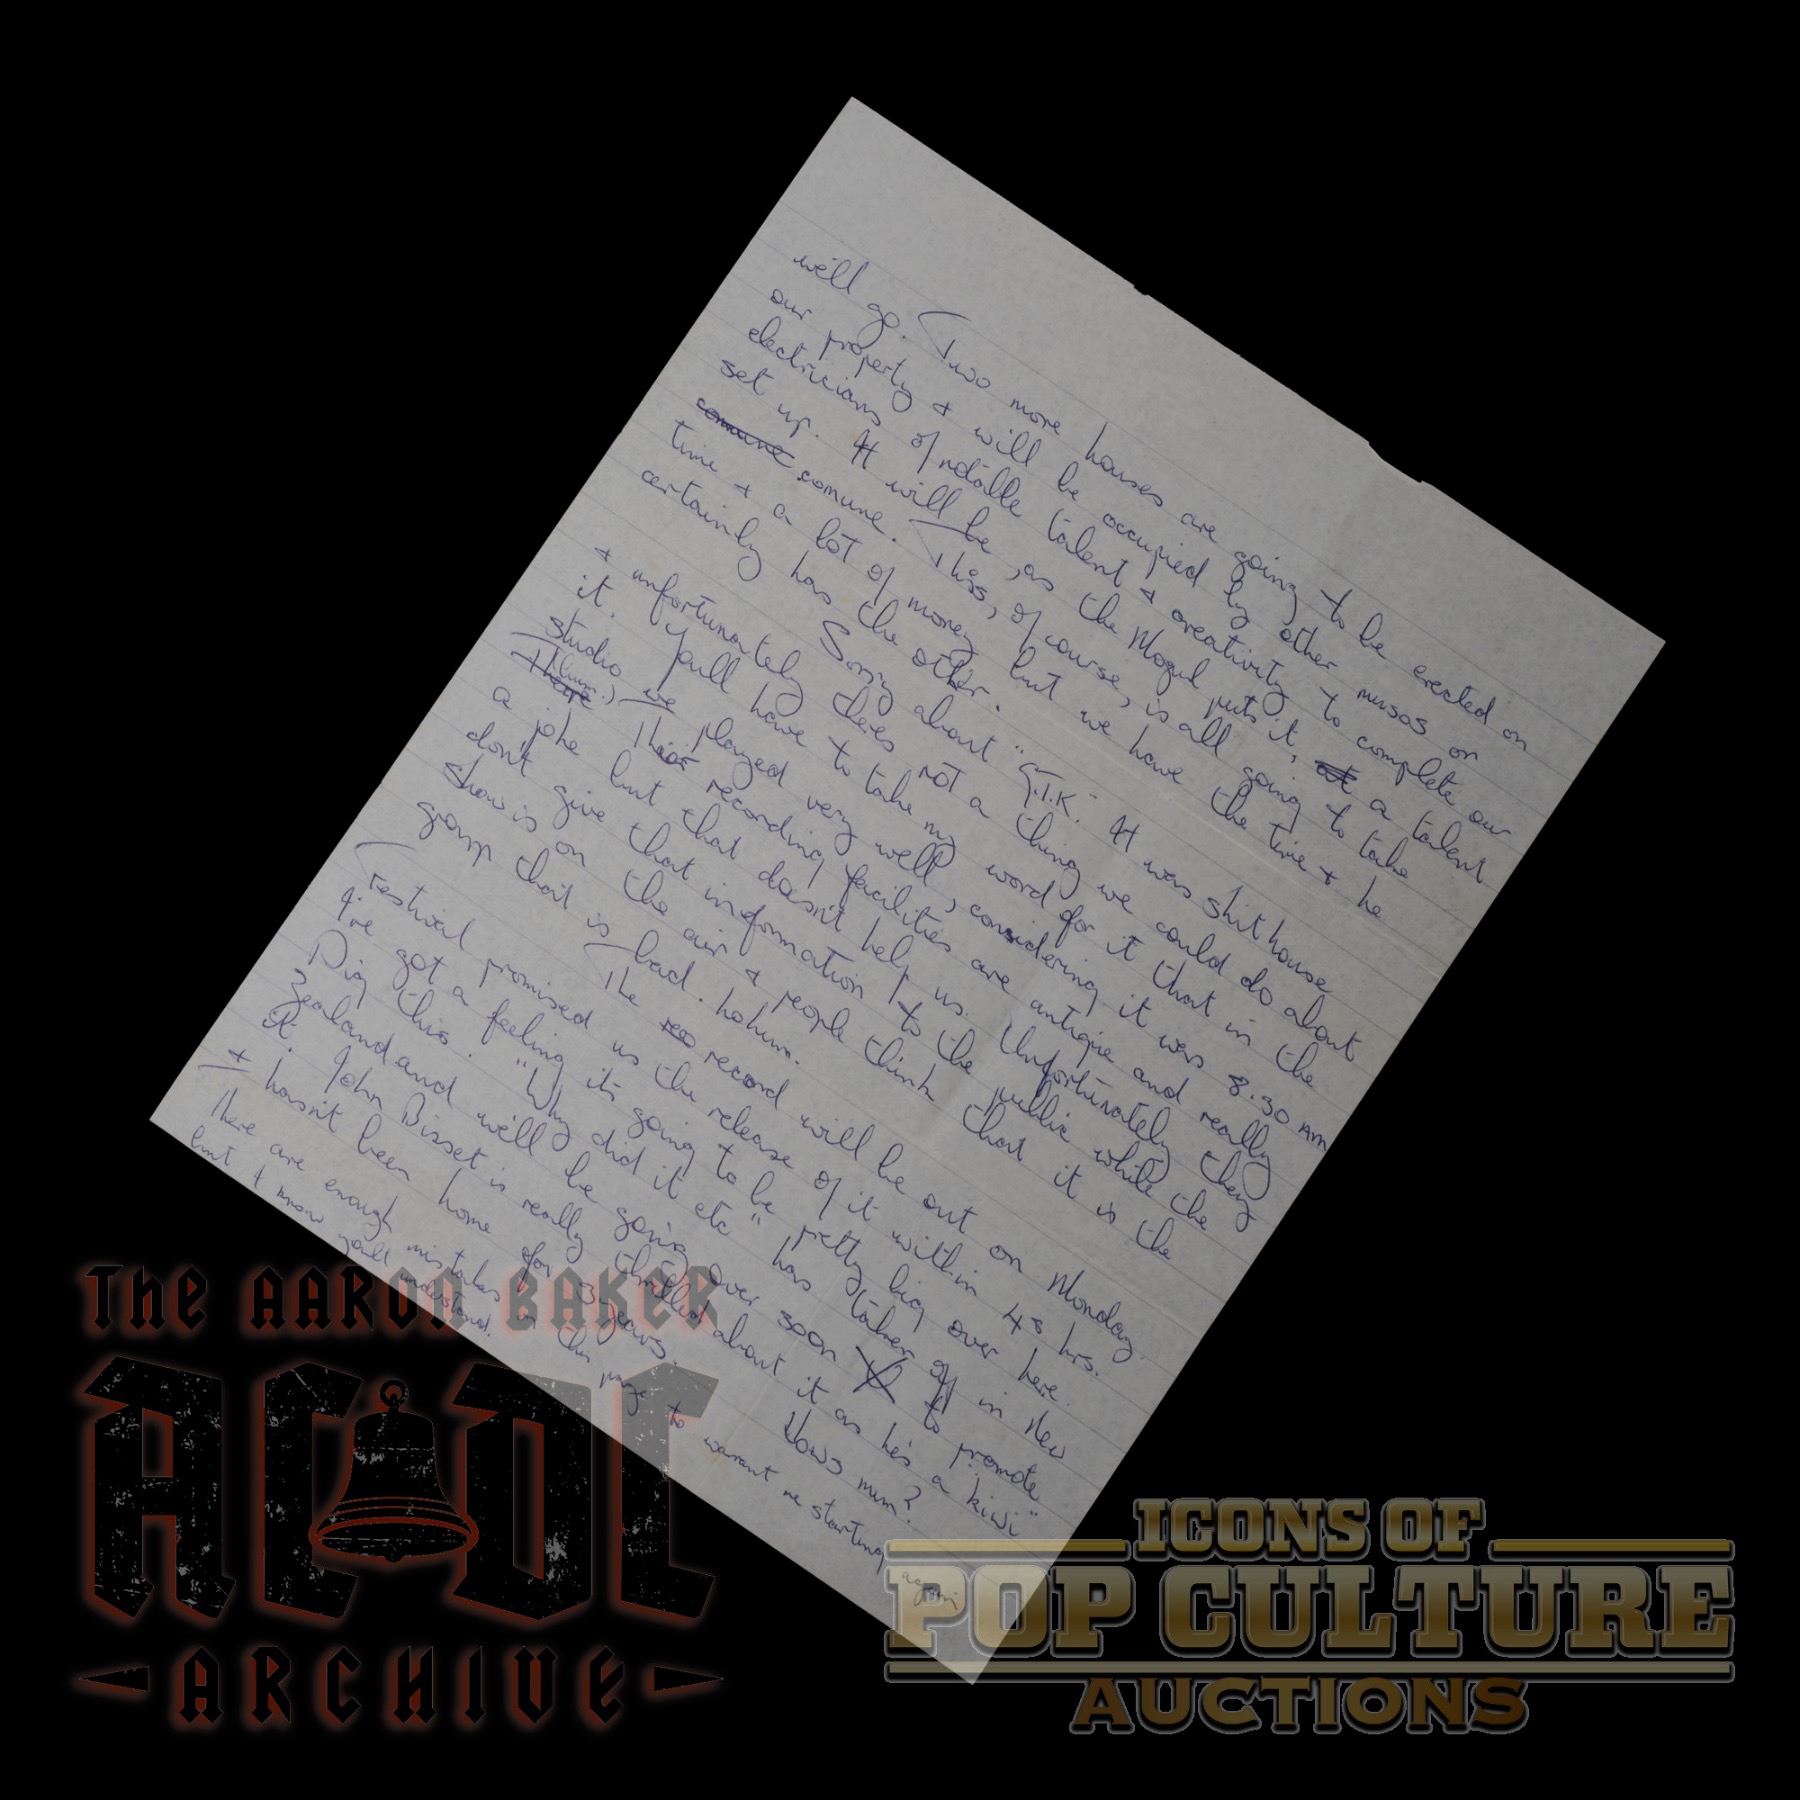 we'll go. Two more houses are going to be erected on
our property + will be occupied by other musos or
electricians of notable talent + creativity to complete our
set up. It will be, as the Mogul puts it, a talent
comune. This, of course, is all going to take
time + a lot of money but we have the time + he
certainly has the other.
Sorry about "G.T.K." It was shithouse
+ unfortunately theres not a thing we could do about
it. Youll have to take my word for it that in the
studio we played very well, considering it was 8.30 AM
(hum.) Their recording facilities are antique and really
a joke but that doesn't help us. Unfortunately they
don't give that information to the public while the
show is on the air + people think that it is the
group that is bad. hohum.
The record will be out on Monday.
Festival promised us the release of it within 48 hrs.
I've got a feeling its going to be pretty big over here.
Dig this. "Why did it etc" has taken off in New
Zealand and we'll be going over soon to promote
it. John Bisset is really thrilled about it as he's a "kiwi"
+ hasn't been home for 3 years.
Hows mum?
There are enough mistakes in this page to warrant me starting again
but I know youll understand.
The AARON BAKER
AC DC
ARCHIVE
ICONS OF
POP CULTURE
AUCTIONS